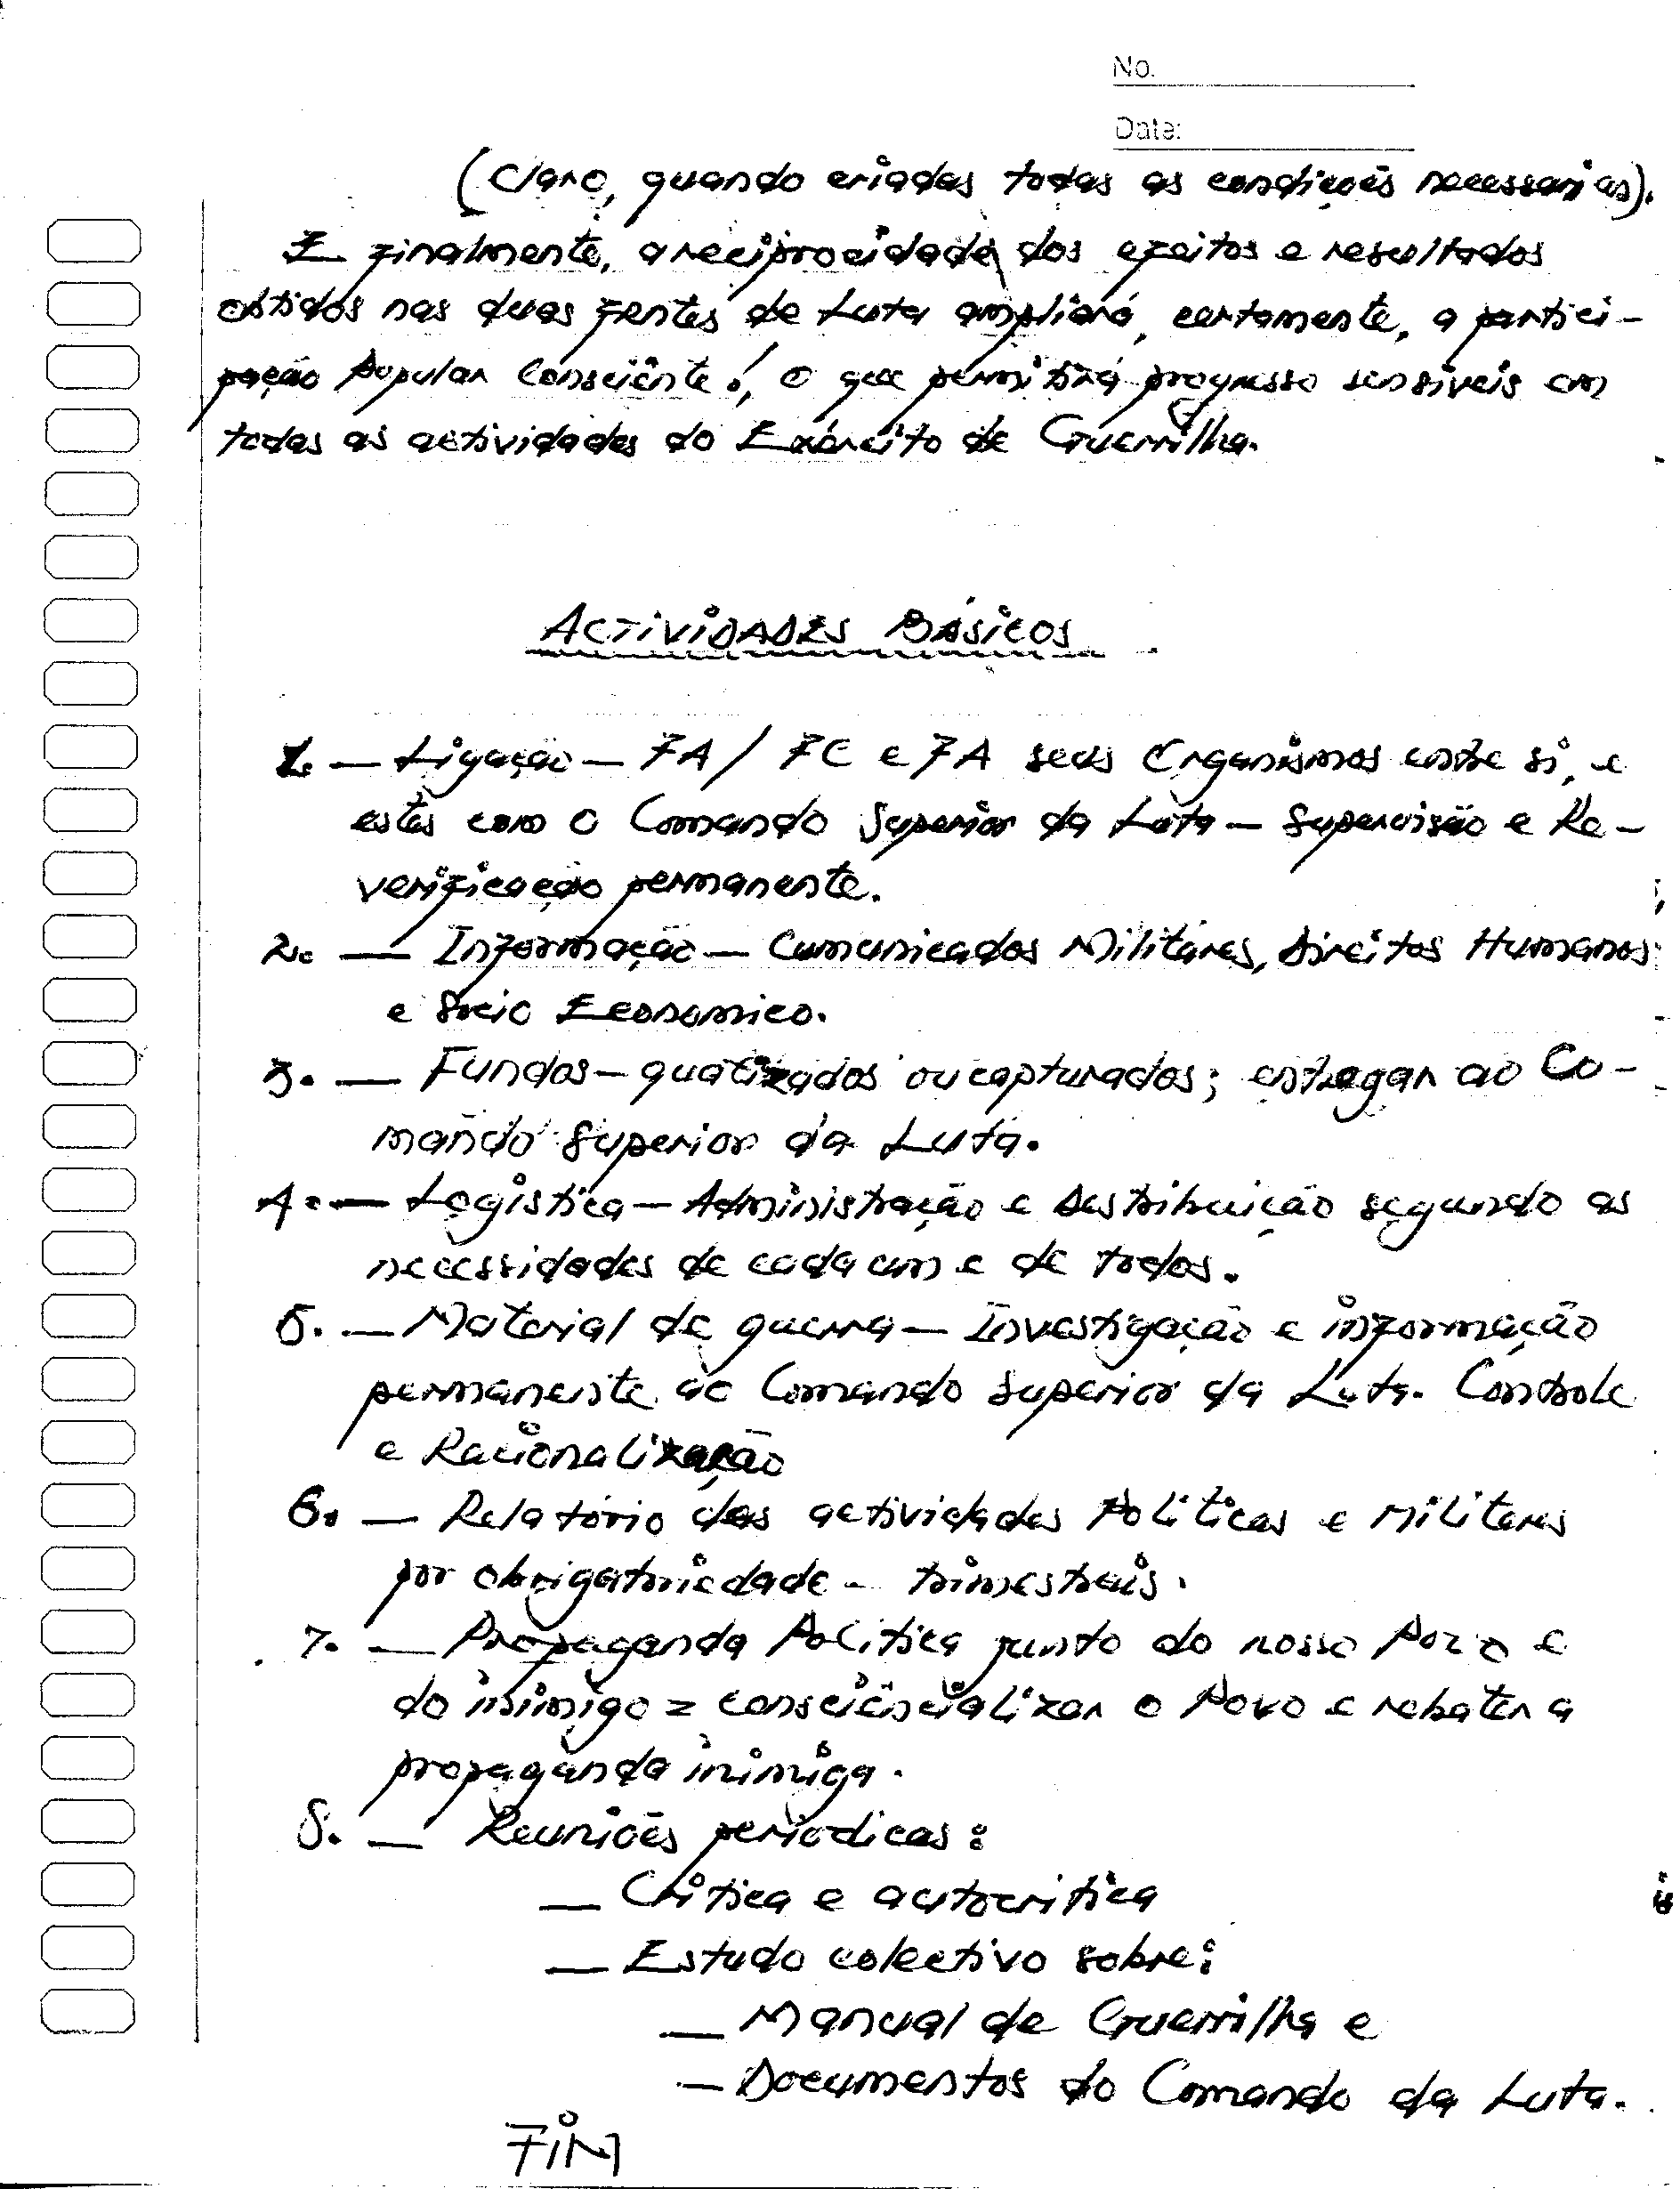 No.
Date:
(Claro, quando criadas todas as condições necessarias).
E finalmente, a reciprocidade dos efeitos e resultados
obtidos nas duas frentes de Luta ampliará, certamente, a partici-
pação Popular Consciente!, o que permitirá progresso sensíveis em
todas as actividades do Exército de Guerrilha.
ACTIVIDADES BÁSICOS
1. — Ligação — FA / FC e FA seus Organismos entre si, e
estes com o Comando Superior da Luta — Supervisão e Re-
verificação permanente.
2. — Informação — Cumunicados Militares, Direitos Humanos
e Socio Economico.
3. — Fundos — quotizados ou capturados; entregar ao Co-
mando Superior da Luta.
4. — Logistica — Administração e Destribuição segundo as
necessidades de cada um e de todos.
5. — Material de guerra — Investigação e informação
permanente ao Comando Superior da Luta. Controle
e Racionalização
6. — Relatório das actividades Politicas e Militares
por obrigatoriedade - trimestrais.
7. — Propaganda Politica junto do nosso Povo e
do inimigo = consciêncializar o Povo e rebater a
propaganda inimiga.
8. — Reuniões periodicas:
— Critica e autocritica
— Estudo colectivo sobre:
— Manual de Guerrilha e
— Documentos do Comando da Luta.
FIM